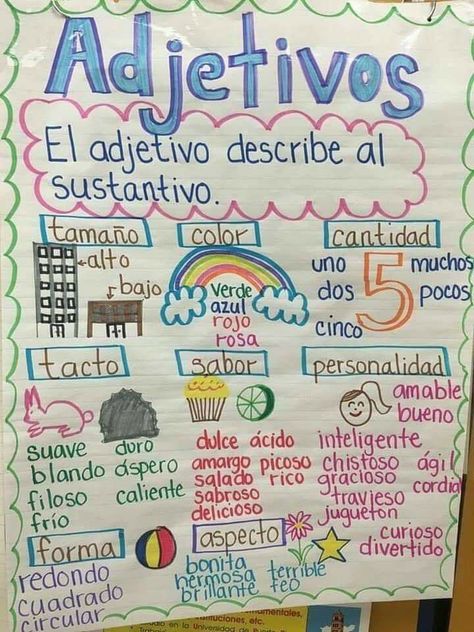 Adjetivos
El adjetivo describe al
sustantivo.
tamaño
alto
bajo
color
Verde
azul
rojo
rosa
cantidad
uno
dos
cinco
5
muchos
pocos
tacto
suave duro
blando áspero
filoso caliente
frío
sabor
dulce ácido
amargo picoso
salado rico
sabroso
delicioso
personalidad
amable
bueno
inteligente
chistoso ágil
gracioso cordial
travieso
juguetón
curioso
divertido
forma
redondo
cuadrado
circular
aspecto
bonita
hermosa terrible
brillante feo
tuciones, etc.